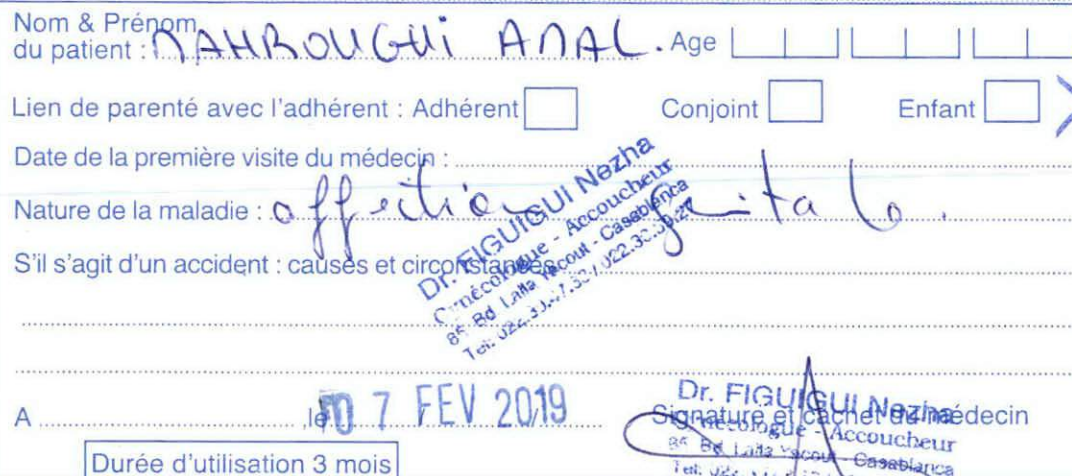 Nom & Prénom
du patient : MAHROUGUi AMAL. Age
Lien de parenté avec l'adhérent : Adhérent Conjoint Enfant
Date de la première visite du médecin :
Nature de la maladie : affection génitale.
S'il s'agit d'un accident : causes et circonstances
Dr. FIGUIGUI Nezha
Gynécologue - Accoucheur
85 Bd Lalla Yacout - Casablanca
A ,le 07 FEV 2019
Signature et cachet du médecin
Dr. FIGUIGUI Nezha
Gynécologue - Accoucheur
85 Bd Lalla Yacout - Casablanca
Durée d'utilisation 3 mois